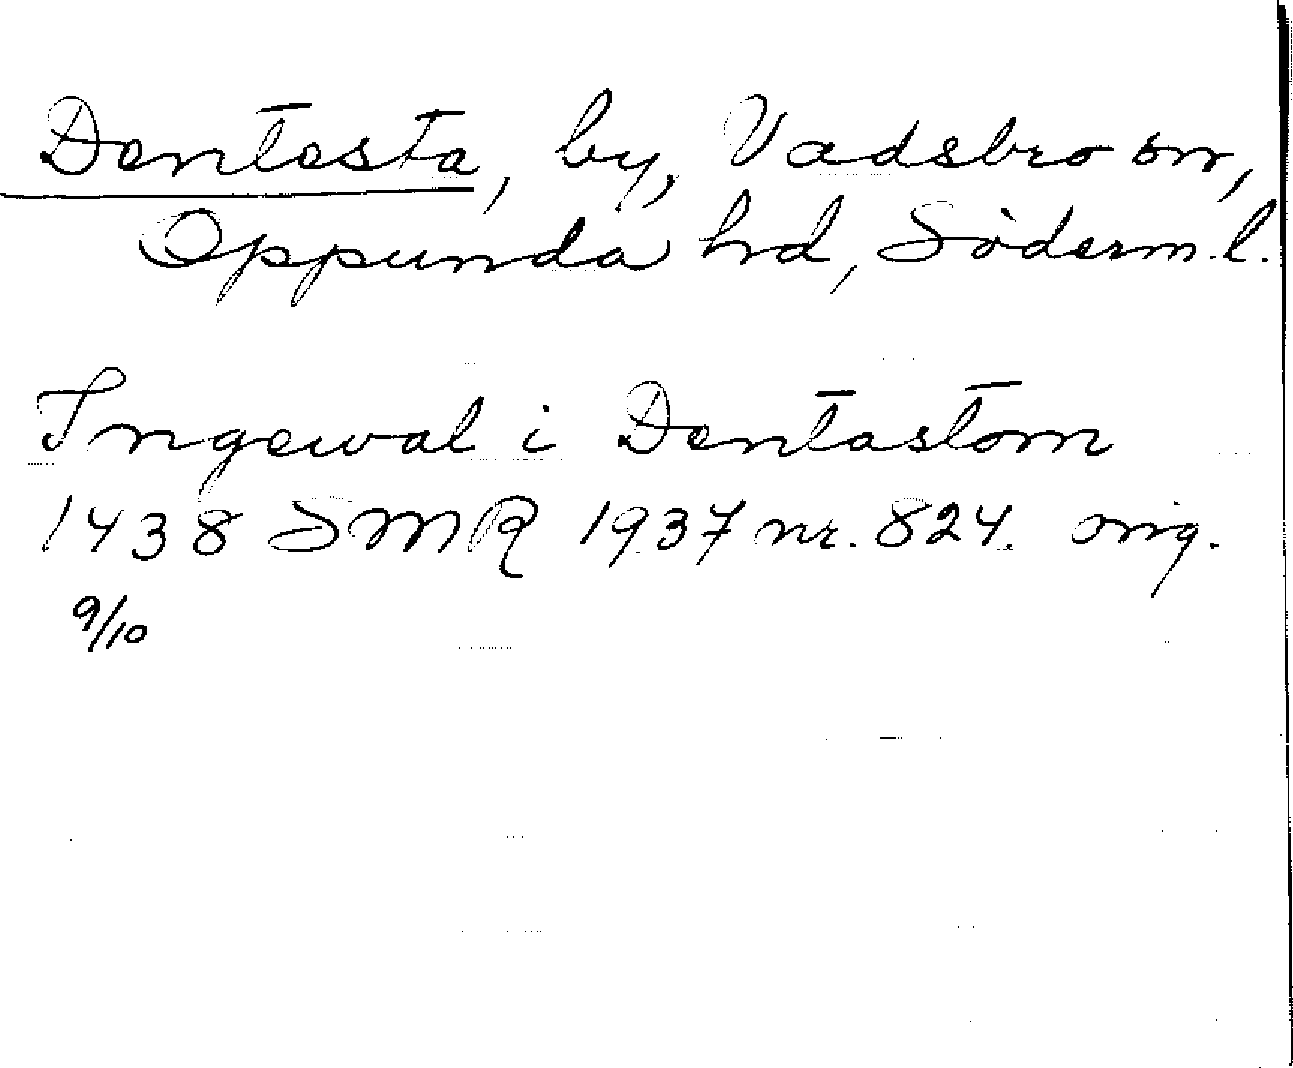 Dentesta, by, Vadsbro sn,
Oppunda hd, Söderm.l.
Ingewal i Dentastom
1438 SMR 1937 nr. 824. orig.
9/10